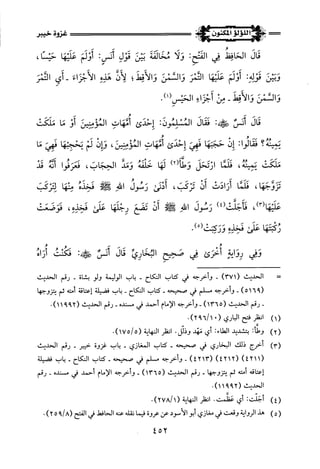 اللؤلؤ المكنون
غزوة خيبر
قَالَ الحَافِظُ فِي الفَتْحِ: وَلَا مُخَالَفَةَ بَيْنَ قَوْلِ أَنَسٍ: أَوْلَمَ عَلَيْهَا حَيْسًا،
وَبَيْنَ قَوْلِهِ: أَوْلَمَ عَلَيْهَا التَّمْرَ وَالسَّمْنَ وَالأَقِطَ؛ لِأَنَّ هَذِهِ الأَجْزَاءَ - أَيِ التَّمْرَ
وَالسَّمْنَ وَالأَقِطَ - مِنْ أَجْزَاءِ الحَيْسِ(١).
قَالَ أَنَسٌ ﷺ: فَقَالَ المُسْلِمُونَ: إِحْدَى أُمَّهَاتِ المُؤْمِنِينَ، أَوْ مَا مَلَكَتْ
يَمِينُهُ؟ فَقَالُوا: إِنْ حَجَبَهَا فَهِيَ إِحْدَى أُمَّهَاتِ المُؤْمِنِينَ، وَإِنْ لَمْ يَحْجُبْهَا فَهِيَ مَا
مَلَكَتْ يَمِينُهُ، فَلَمَّا ارْتَحَلَ وَطَّأَ(٢) لَهَا خَلْفَهُ وَمَدَّ الحِجَابَ، فَعَرَفُوا أَنَّهُ قَدْ
تَزَوَّجَهَا، فَلَمَّا أَرَادَتْ أَنْ تَرْكَبَ، أَدْنَى رَسُولُ اللهِ ﷺ فَخِذَهُ مِنْهَا لِتَرْكَبَ
عَلَيْهَا(٣)، فَأَجَلَّتْ(٤) رَسُولَ اللهِ ﷺ أَنْ تَضَعَ رِجْلَهَا عَلَى فَخِذِهِ، فَوَضَعَتْ
رُكْبَتَهَا عَلَى فَخِذِهِ وَرَكِبَتْ(٥).
وَفِي رِوَايَةٍ أُخْرَى فِي صَحِيحِ البُخَارِيِّ قَالَ أَنَسٌ: فَكُنْتُ أُرَاهُ
= الحديث (٣٧١) - وأخرجه في كتاب النكاح - باب الوليمة ولو بشاة - رقم الحديث
(٥١٦٩) - وأخرجه مسلم في صحيحه - كتاب النكاح - باب فضيلة إعتاقه أمته ثم يتزوجها
- رقم الحديث (١٣٦٥) - وأخرجه الإمام أحمد في مسنده - رقم الحديث (١١٩٩٢).
(١) انظر فتح الباري (٢٩٦/١٠).
(٢) وطَّأ: بتشديد الطاء: أي مَهَّد وذلَّل. انظر النهاية (١٧٥/٥).
(٣) أخرج ذلك البخاري في صحيحه - كتاب المغازي - باب غزوة خيبر - رقم الحديث
(٤٢١١) (٤٢١٢) (٤٢١٣) - وأخرجه مسلم في صحيحه - كتاب النكاح - باب فضيلة
إعتاقه أمته ثم يتزوجها - رقم الحديث (١٣٦٥) - وأخرجه الإمام أحمد في مسنده - رقم
الحديث (١١٩٩٢).
(٤) أجلّت: أي عظّمت. انظر النهاية (٢٧٨/١).
(٥) هذه الرواية وقعت في مغازي أبو الأسود عن عروة فيما نقله عنه الحافظ في الفتح (٢٥٩/٨).
٤٥٢